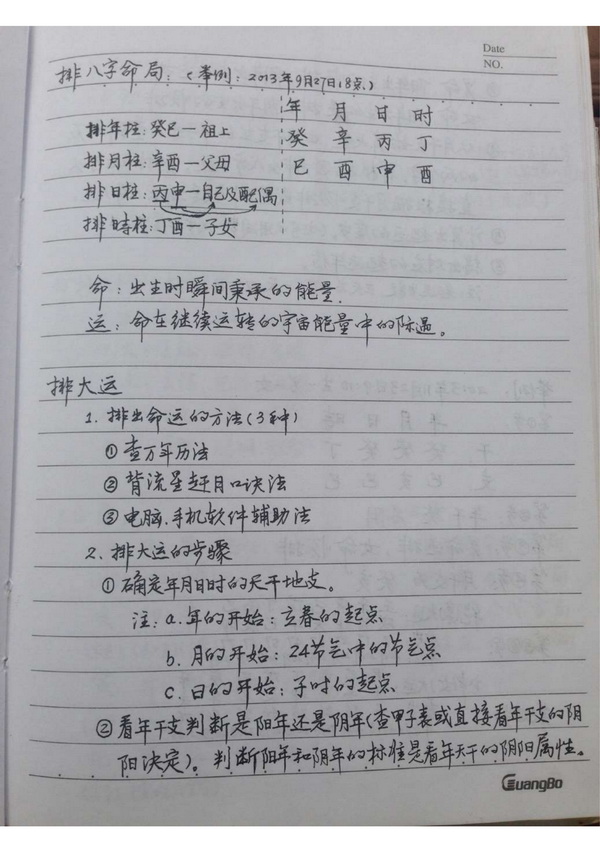 Date
NO.
排八字命局:(举例:2013年9月27日18点)
年 月 日 时
排年柱:癸巳—祖上 癸 辛 丙 丁
排月柱:辛酉—父母 巳 酉 申 酉
排日柱:丙申—自己及配偶
排時柱:丁酉—子女
命:出生时瞬间秉承的能量.
运:命在继续运转的宇宙能量中的际遇。
排大运
1.排出命运的方法(3种)
①查万年历法
②背流星赶月口诀法
③电脑.手机软件辅助法
2.排大运的步骤
①确定年月日时的天干地支。
注:a.年的开始:立春的起点
b.月的开始:24节气中的节气点
c.日的开始:子时的起点
②看年干支判断是阳年还是阴年(查甲子表或直接看年干支的阴
阳决定)。判断阳年和阴年的标准是看年天干的阴阳属性。
GuangBo